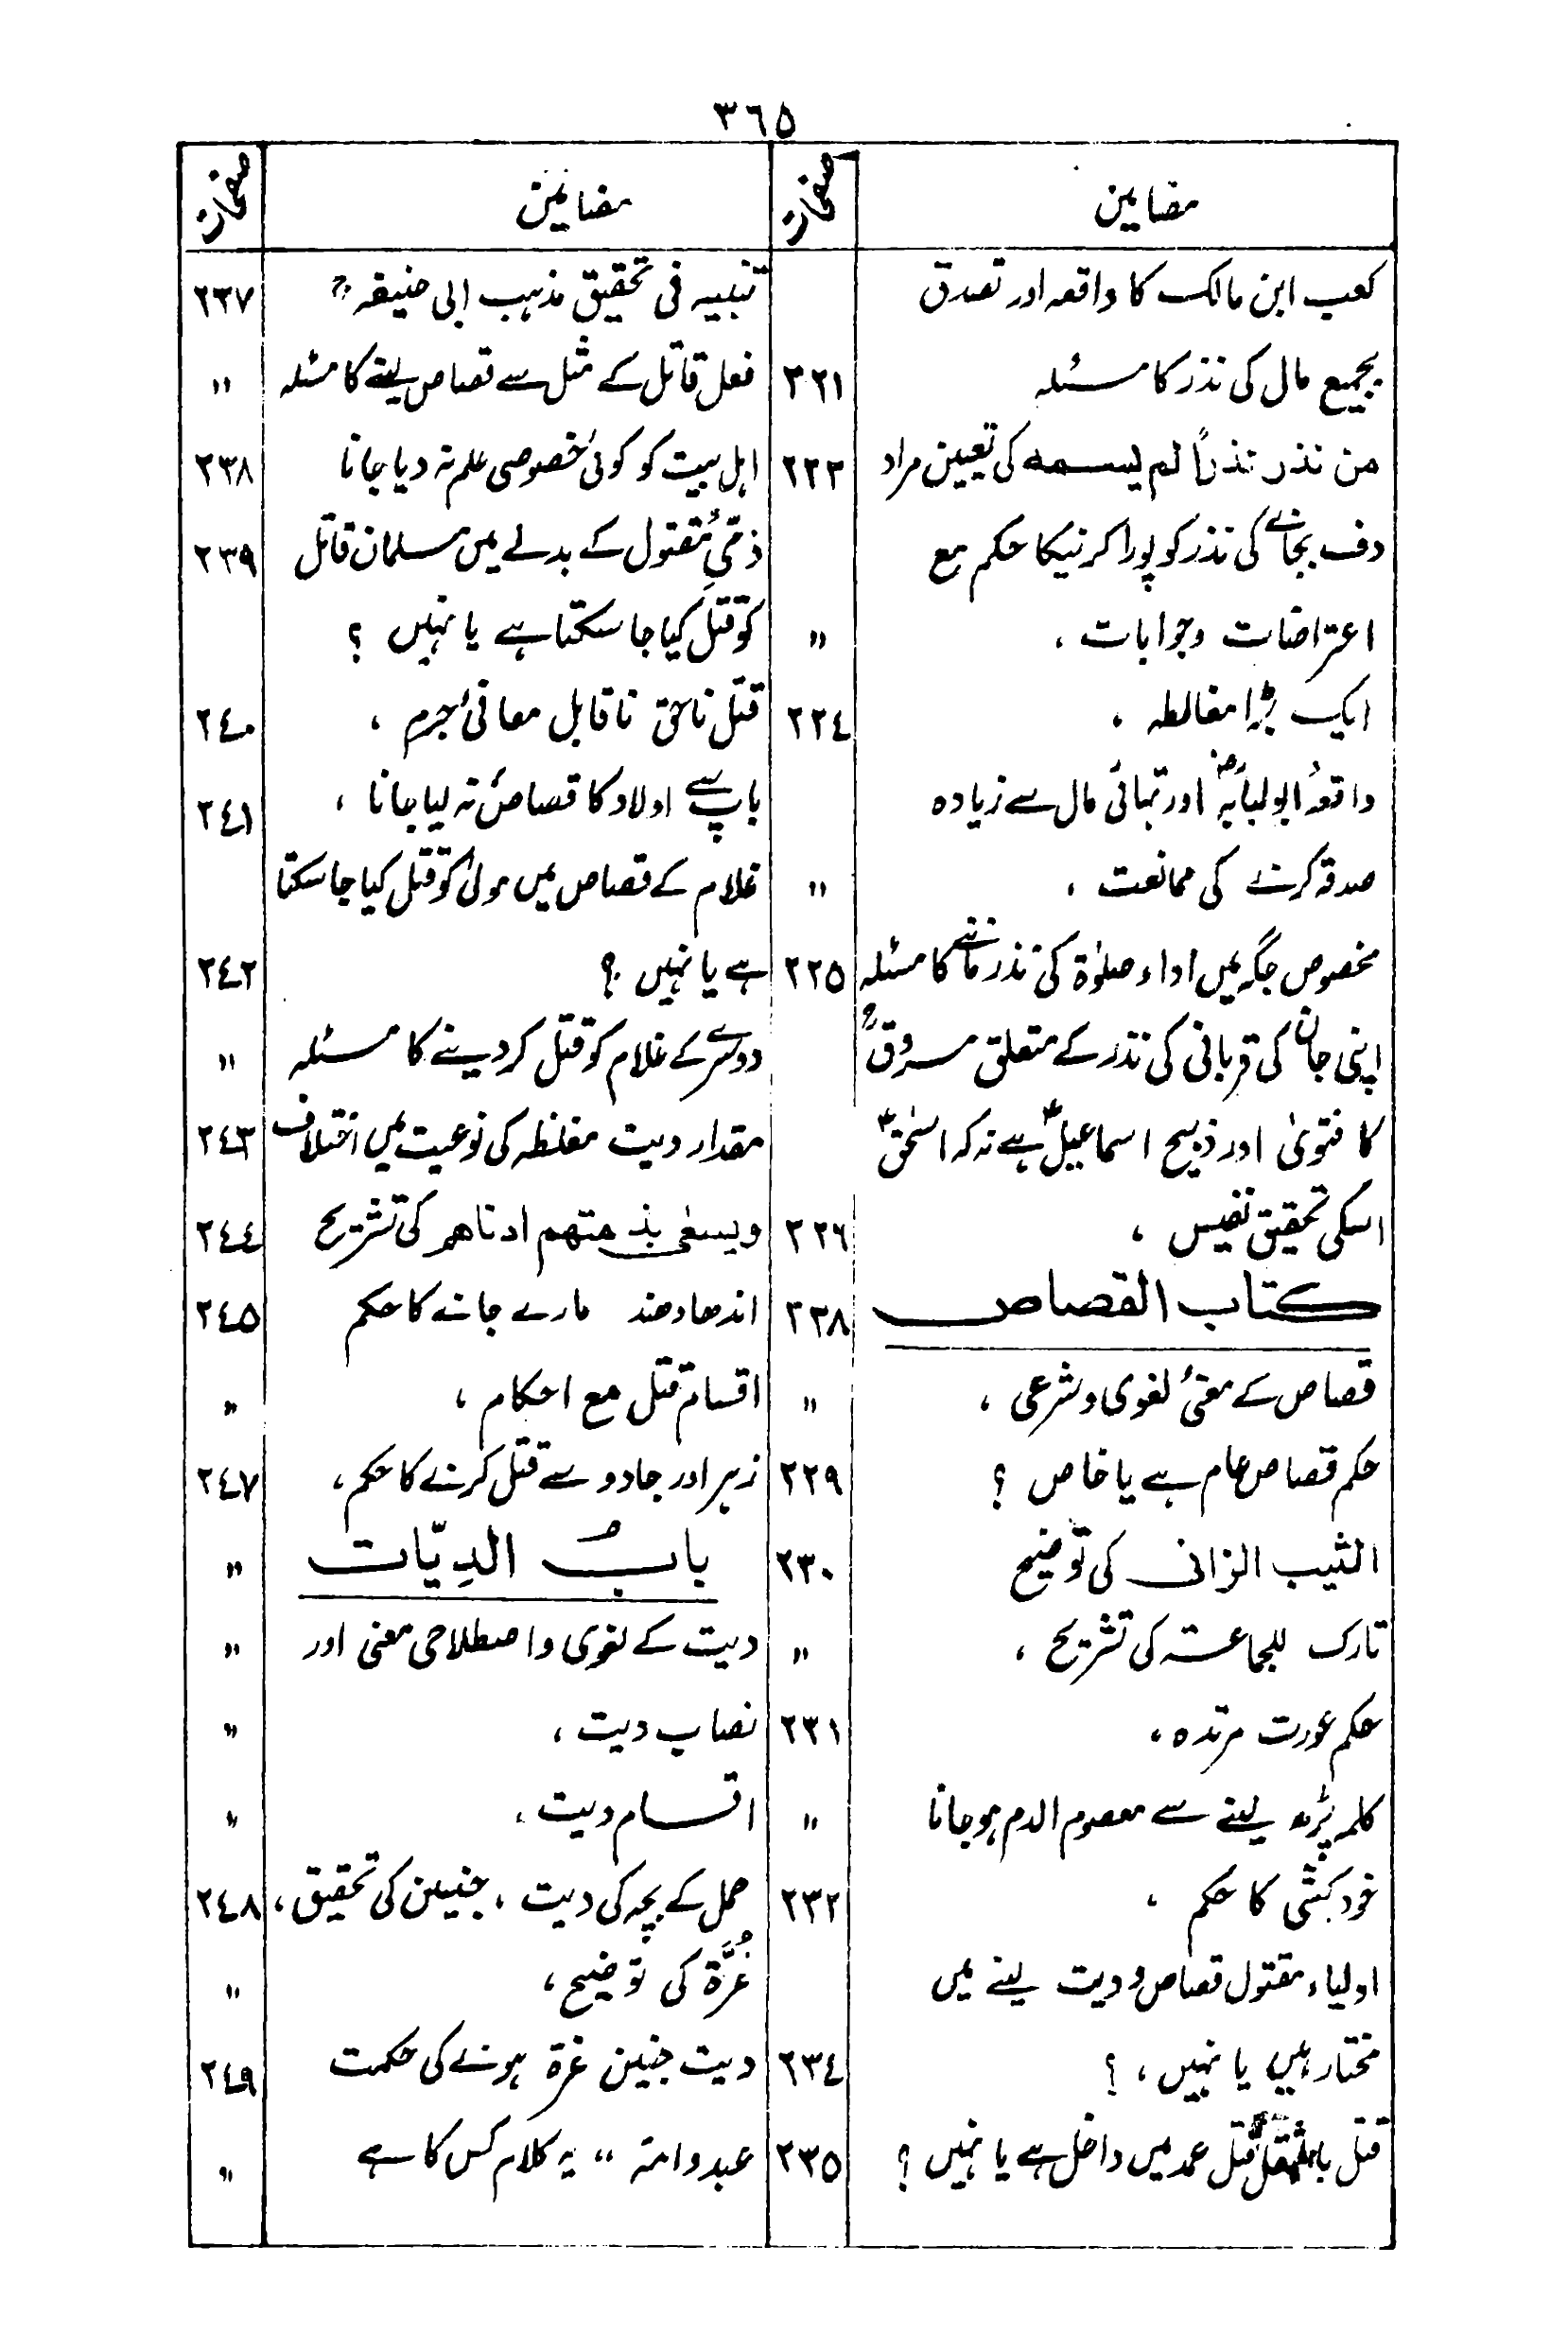 ٣٦٥
مضامین صفحات
کعب ابن مالک کا واقعہ اور تصدق
بجمیع مال کی نذر کا مسئلہ ٢٢١
من نذر نذراً لم یسمه کی تعیین مراد ٢٢٣
دف بجانے کی نذر کو پورا کرنیکا حکم مع
اعتراضات وجوابات ، "
ایک بڑا مغالطہ ، ٢٢٤
واقعۂ ابولبابہؓ اور تہائی مال سے زیادہ
صدقہ کرنے کی ممانعت ، "
مخصوص جگہ میں اداء صلوٰۃ کی نذر ماننے کا مسئلہ ٢٢٥
اپنی جان کی قربانی کی نذر کے متعلق مسروقؒ
کا فتویٰ اور ذبیح اسماعیلؑ ہے نہ کہ اسحٰقؑ
اسکی تحقیق نفیس ، ٢٢٦
کتاب القصاص ٢٢٨
قصاص کے معنیٔ لغوی وشرعی ، "
حکم قصاص عام ہے یا خاص ؟ ٢٢٩
الثیب الزانی کی توضیح ٢٣٠
تارک للجماعۃ کی تشریح ، "
حکم عورت مرتدہ ، ٢٣١
کلمہ پڑھ لینے سے معصوم الدم ہوجانا "
خودکشی کا حکم ، ٢٣٢
اولیاء مقتول قصاص و دیت لینے میں
مختار ہیں یا نہیں ، ؟ ٢٣٤
قتل بالمثقل قتل عمد میں داخل ہے یا نہیں ؟ ٢٣٥
مضامین صفحات
تنبیہ فی تحقیق مذہب ابی حنیفہؒ ٢٣٧
فعل قاتل کے مثل سے قصاص لینے کا مسئلہ "
اہل بیت کو کوئی خصوصی علم نہ دیا جانا ٢٣٨
ذمّیِ مقتول کے بدلے میں مسلمان قاتل ٢٣٩
کو قتل کیا جاسکتا ہے یا نہیں ؟
قتل ناحق ناقابل معافیٔ جرم ، ٢٤٠
باپ سے اولاد کا قصاص نہ لیا جانا ، ٢٤١
غلام کے قصاص میں مولیٰ کو قتل کیا جاسکتا
ہے یا نہیں ؟ ٢٤٢
دوسرے کے غلام کو قتل کردینے کا مسئلہ "
مقدار دیت مغلظہ کی نوعیت میں اختلاف ٢٤٣
ویسعٰی بذمتهم ادناهم کی تشریح ٢٤٤
اندھا دھند مارے جانے کا حکم ٢٤٥
اقسام قتل مع احکام ، "
زہر اور جادو سے قتل کرنے کا حکم ، ٢٤٧
بابُ الدِیّات "
دیت کے لغوی واصطلاحی معنی اور "
نصاب دیت ، "
اقسام دیت ، "
حمل کے بچہ کی دیت ، جنین کی تحقیق ، ٢٤٨
غُرَّۃ کی توضیح ، "
دیت جنین غرۃ ہونے کی حکمت ٢٤٩
عبد وامۃ " یہ کلام کس کا ہے "